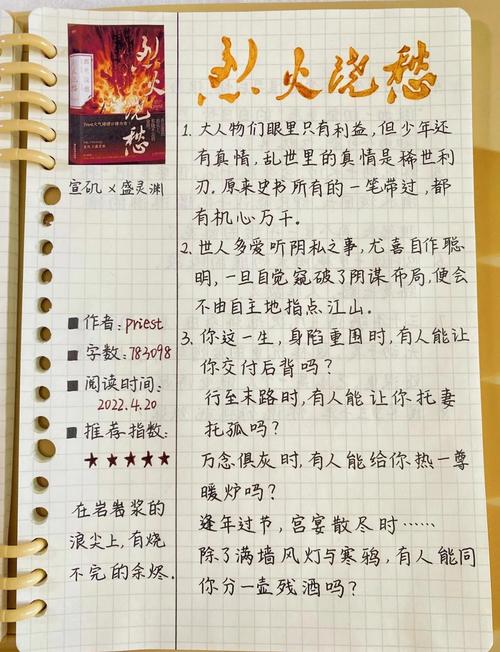 烈火浇愁
烈火浇愁
宣矶×盛灵渊
作者:priest
字数:783098
阅读时间:
2022.4.20
推荐指数:
★★★★★
在岩岩浆的
浪尖上,有烧
不完的余烬.
1. 大人物们眼里只有利益,但少年还
有真情,乱世里的真情是稀世利
刃.原来史书所有的一笔带过,都
有机心万千.
2. 世人多爱听阴私之事,尤喜自作聪
明,一旦自觉窥破了阴谋布局,便会
不由自主地指点江山.
3. 你这一生,身陷重围时,有人能让
你交付后背吗?
行至末路时,有人能让你托妻
托孤吗?
万念俱灰时,有人能给你热一尊
暖炉吗?
逢年过节,宫宴散尽时……
除了满墙风灯与寒鸦,有人能同
你分一壶残酒吗?